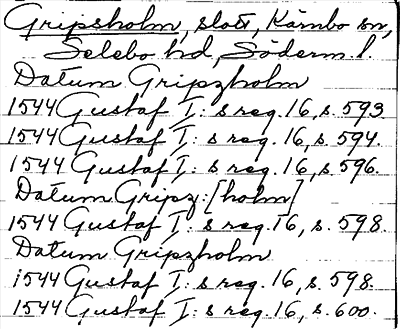 Gripsholm, slott, Kärnbo sn,
Selebo hd, Söderm. l.
Datum Gripzholm
1544 Gustaf I: s reg. 16, s. 593.
1544 Gustaf I: s reg. 16, s. 594.
1544 Gustaf I: s reg. 16, s. 596.
Datum Gripz: [holm]
1544 Gustaf I: s reg. 16, s. 598.
Datum Gripzholm
1544 Gustaf I: s reg. 16, s. 598.
1544 Gustaf I: s reg. 16, s. 600.